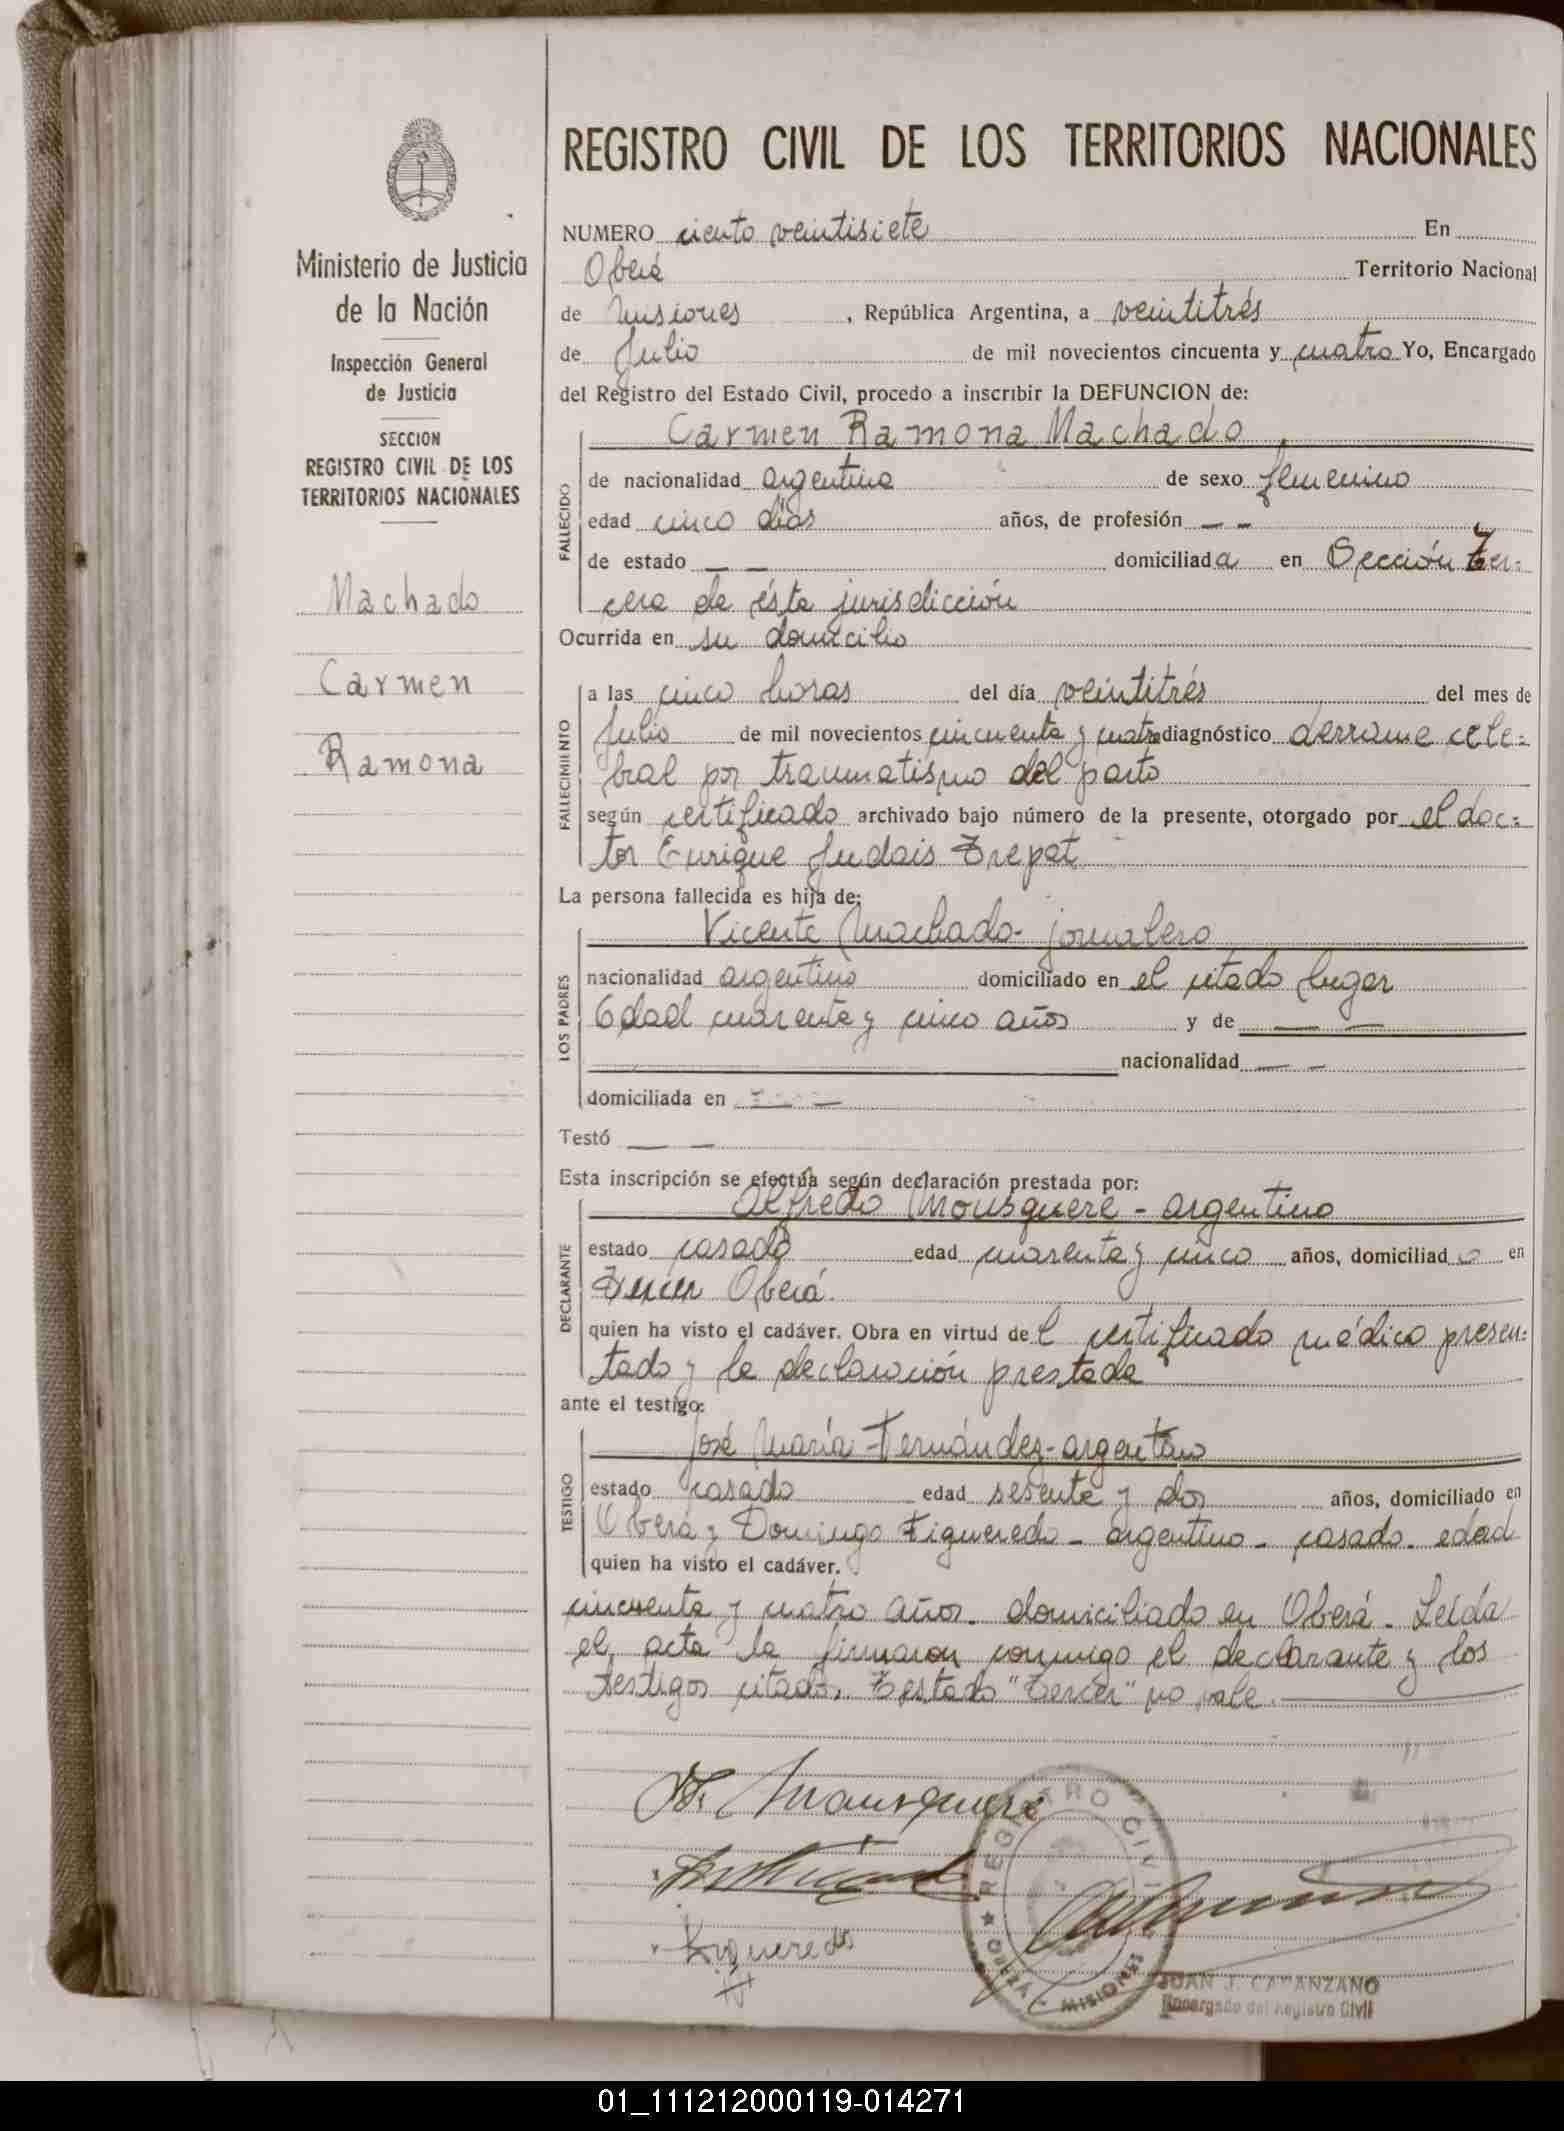 REGISTRO CIVIL DE LOS TERRITORIOS NACIONALES
Ministerio de Justicia
de la Nación
Inspección General
de Justicia
SECCION
REGISTRO CIVIL DE LOS
TERRITORIOS NACIONALES
Machado
Carmen
Ramona
NUMERO ciento veintisiete En
Oberá Territorio Nacional
de Misiones , República Argentina, a veintitrés
de Julio de mil novecientos cincuenta y cuatro Yo, Encargado
del Registro del Estado Civil, procedo a inscribir la DEFUNCION de:
Carmen Ramona Machado
FALLECIDO
de nacionalidad argentina de sexo femenino
edad cinco días años, de profesión — —
de estado — — domiciliada en Sección Ter-
cera de ésta jurisdicción
Ocurrida en su domicilio
FALLECIMIENTO
a las cinco horas del día veintitrés del mes de
Julio de mil novecientos cincuenta y cuatro diagnóstico derrame cele-
bral por traumatismo del parto
según certificado archivado bajo número de la presente, otorgado por el doc-
tor Enrique Judais Trepat
La persona fallecida es hija de:
LOS PADRES
Vicente Machado- jornalero
nacionalidad argentino domiciliado en el citado lugar
Edad cuarenta y cinco años y de — —
nacionalidad — —
domiciliada en — —
Testó — —
Esta inscripción se efectúa según declaración prestada por:
DECLARANTE
Alfredo Mousquere - argentino
estado casado edad cuarenta y cinco años, domiciliado en
Oberá.
quien ha visto el cadáver. Obra en virtud del certificado médico presen-
tado y la declaración prestada
ante el testigo:
TESTIGO
José María Fernández-argentino
estado casado edad sesenta y dos años, domiciliado en
Oberá y Domingo Figueredo - argentino - casado - edad
quien ha visto el cadáver.
cincuenta y cuatro años - domiciliado en Oberá - Leída
el acta la firmaron conmigo el declarante y los
testigos citados. Testado "Tercer" no vale.
Mousquere
Figueredo
REGISTRO CIVIL
OBERA - MISIONES
JUAN J. CATANZANO
Encargado del Registro Civil
01_111212000119-014271